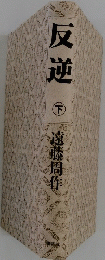 反逆
下
遠藤周作